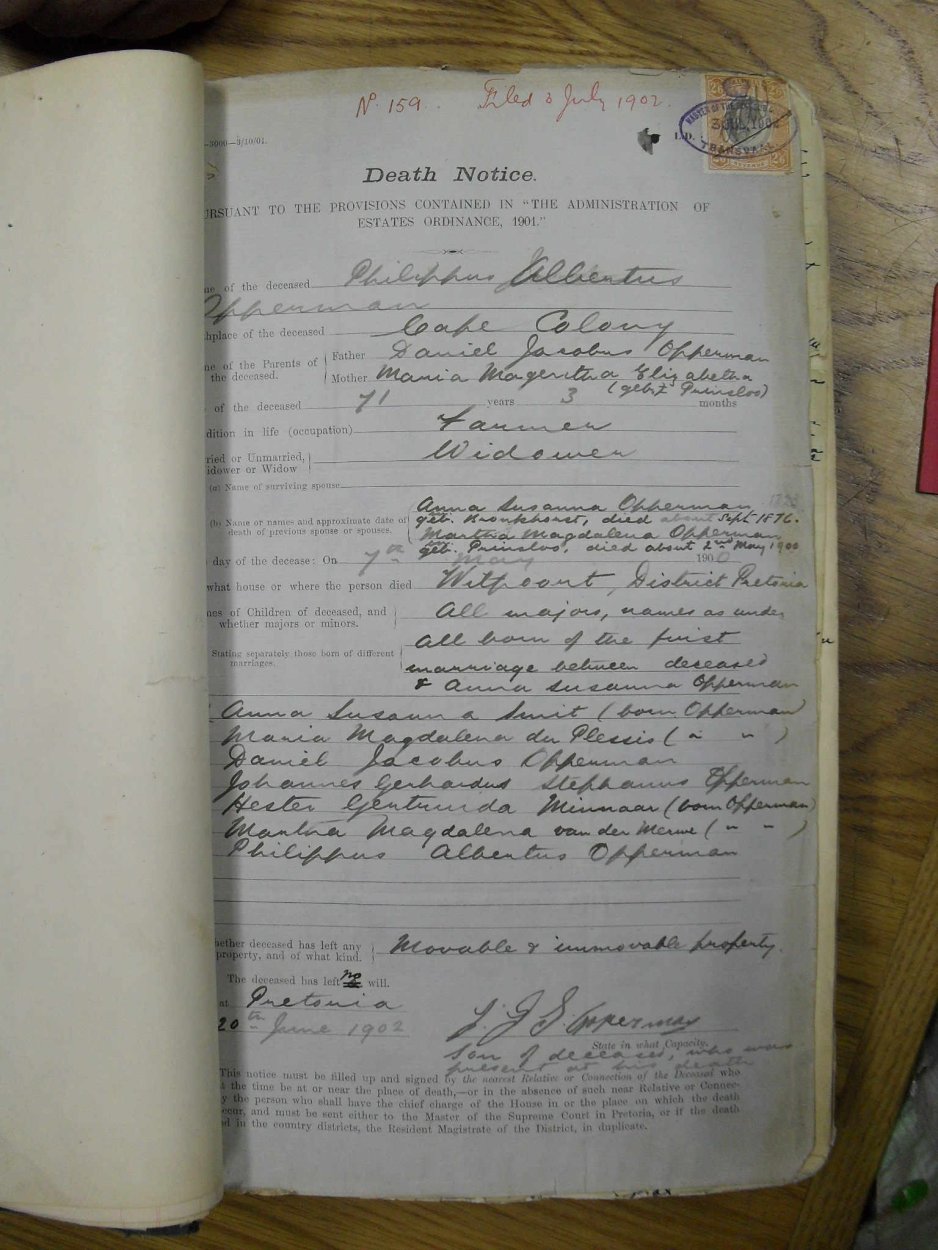 No. 159. Filed 3 July 1902.
MASTER OF THE
3 JUL 1902
TRANSVAAL
2/6
L.D.
—3000—3/10/01.
Death Notice.
URSUANT TO THE PROVISIONS CONTAINED IN "THE ADMINISTRATION OF
ESTATES ORDINANCE, 1901."
me of the deceased Philippus Albertus
Opperman
thplace of the deceased Cape Colony
me of the Parents of the deceased. Father Daniel Jacobus Opperman
Mother Maria Mageritha Elizabetha
(geb. Prinsloo)
of the deceased 71 years 3 months
dition in life (occupation) Farmer
ried or Unmarried,
idower or Widow Widower
(a) Name of surviving spouse
(b) Name or names and approximate date of
death of previous spouse or spouses.
Anna Susanna Opperman
geb. Bronkhorst, died about Sept. 1876.
Martha Magdalena Opperman
geb. Prinsloo, died about 2nd May 1900
day of the decease: On 7th May 1900
what house or where the person died Witpoort, District Pretoria
nes of Children of deceased, and
whether majors or minors. All majors, names as under,
Stating separately those born of different
marriages.
All born of the first
marriage between deceased
& Anna Susanna Opperman
Anna Susanna Smit (born Opperman)
Maria Magdalena du Plessis ( " " )
Daniel Jacobus Opperman
Johannes Gerhardus Stephanus Opperman
Hester Gertruida Minnaar (born Opperman)
Martha Magdalena van der Merwe ( " " )
Philippus Albertus Opperman
hether deceased has left any
property, and of what kind. Movable & immovable property.
The deceased has left no will.
at Pretoria
20th June 1902
J. G S Opperman
State in what Capacity.
Son of deceased, who was
present at his death
This notice must be filled up and signed by the nearest Relative or Connection of the Deceased who
t the time be at or near the place of death,—or in the absence of such near Relative or Connec-
y the person who shall have the chief charge of the House in or the place on which the death
ccur, and must be sent either to the Master of the Supreme Court in Pretoria, or if the death
ed in the country districts, the Resident Magistrate of the District, in duplicate.